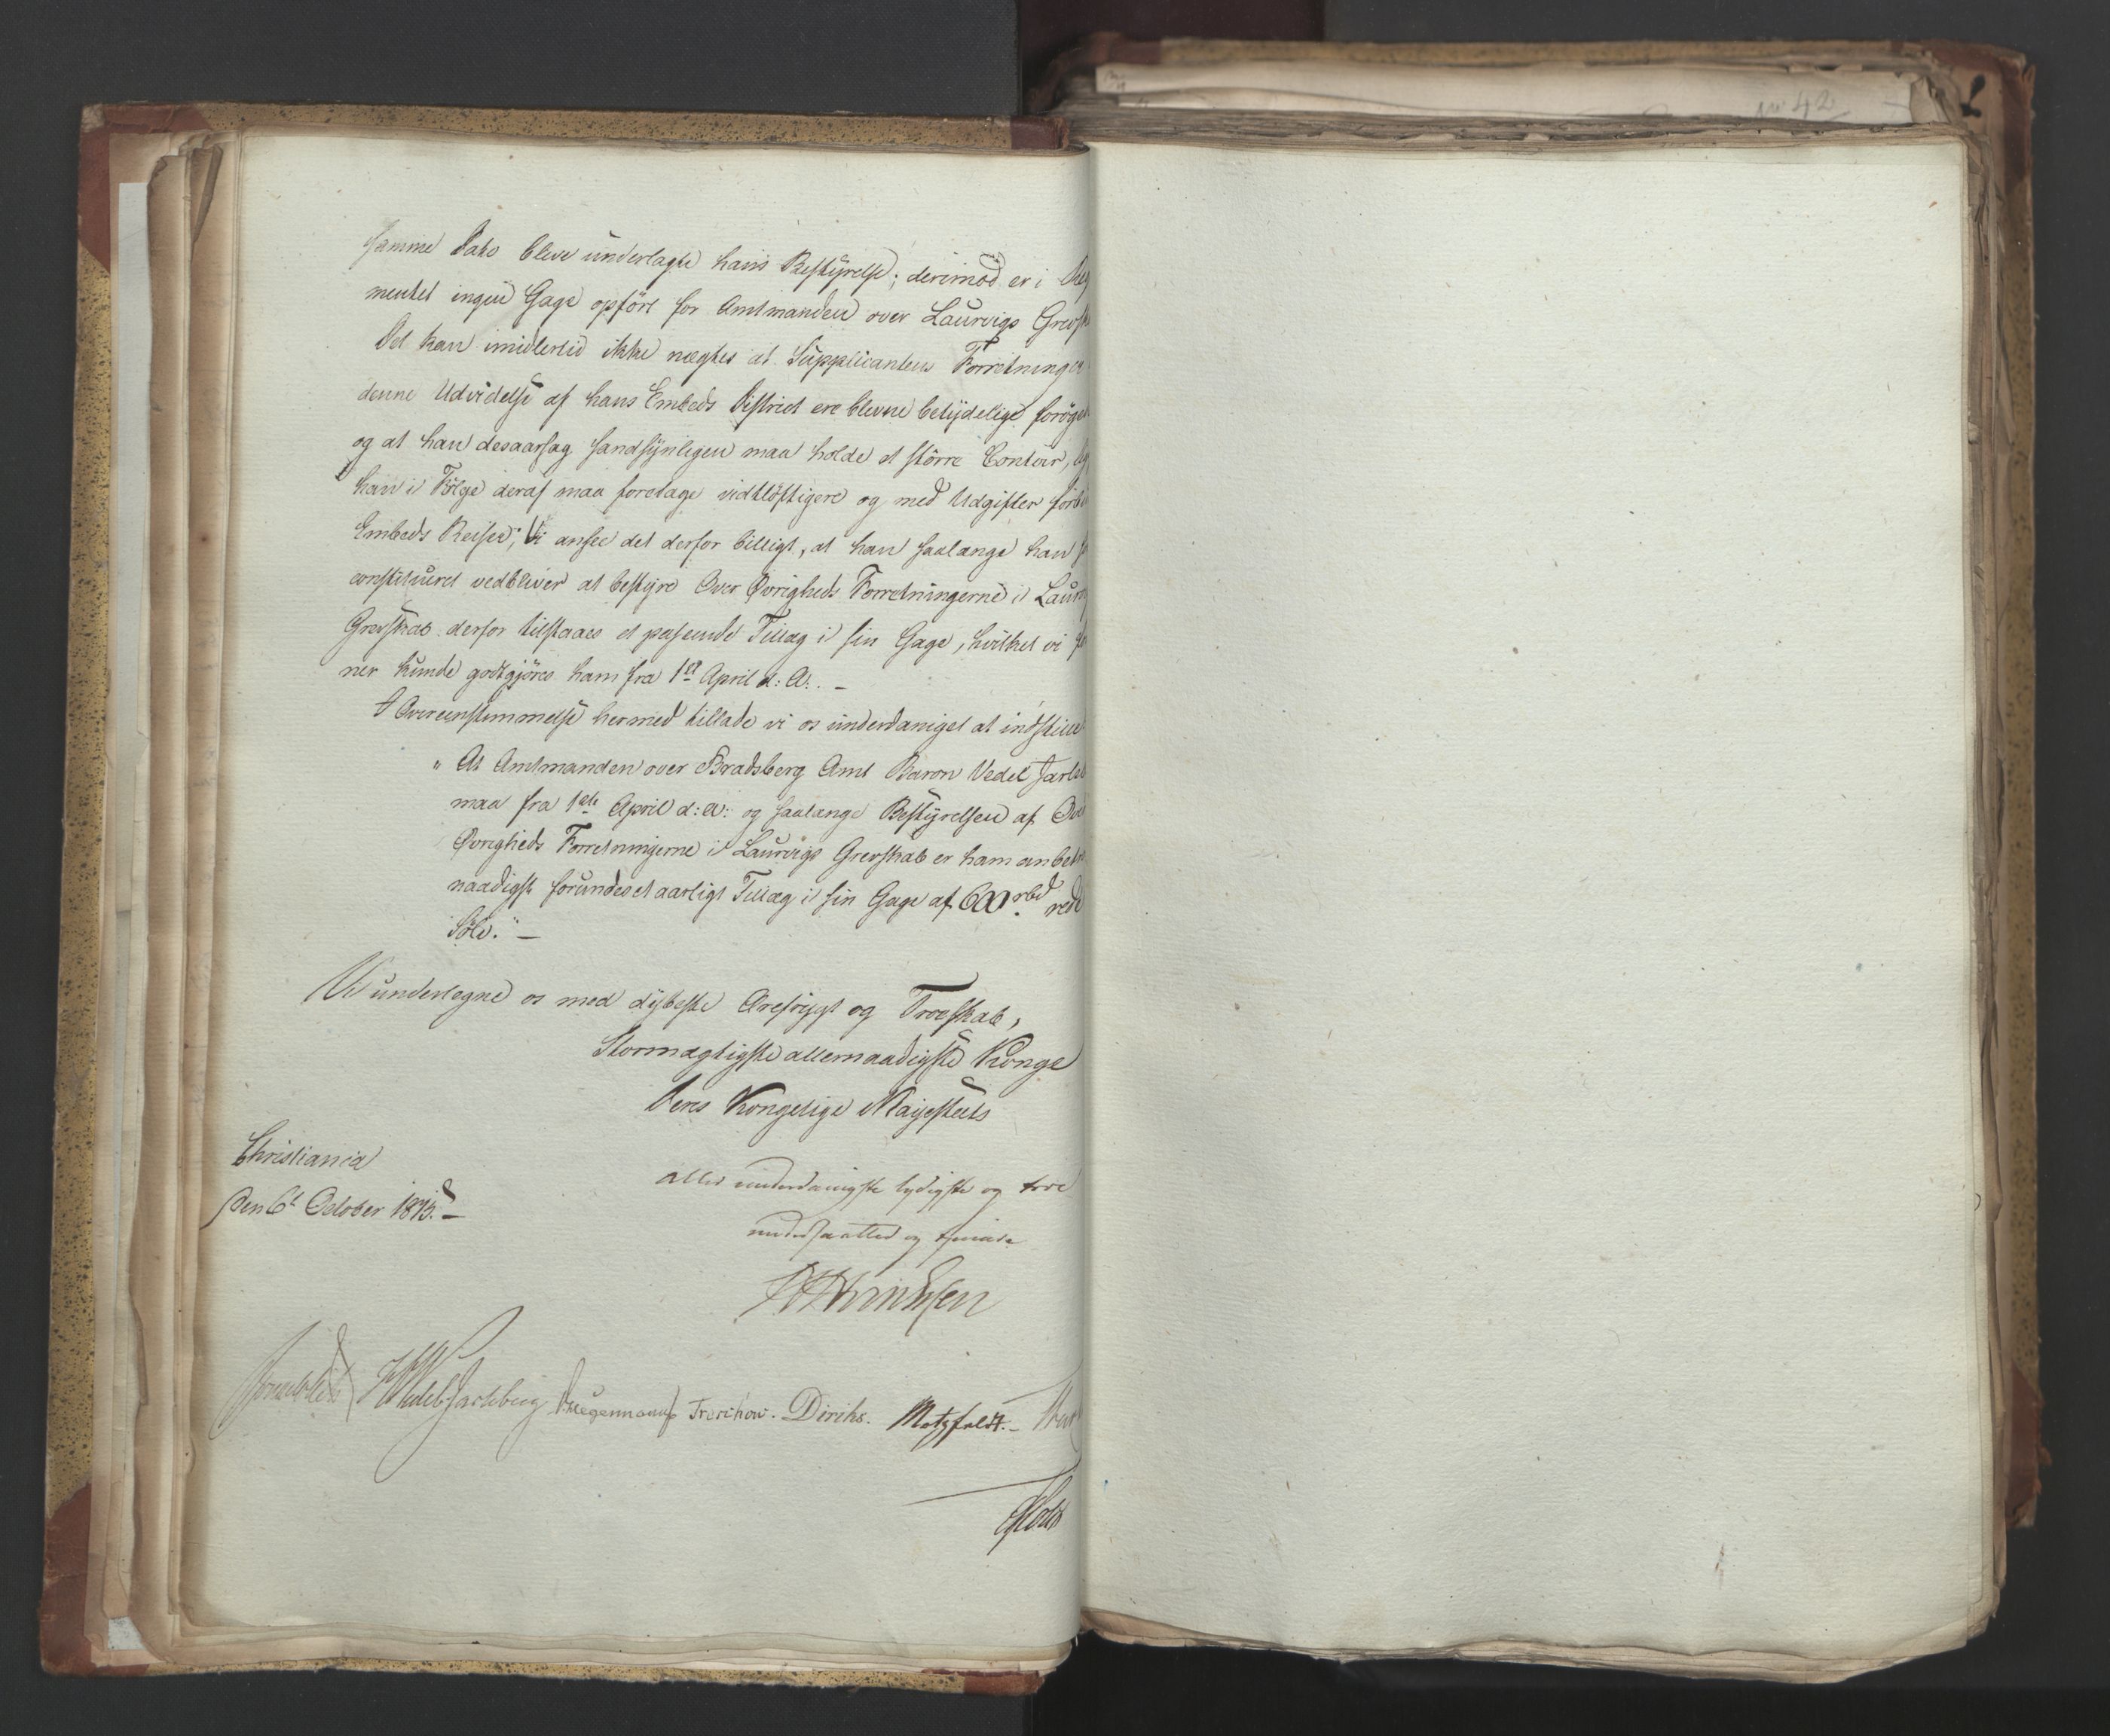 samme Dato bleve underlagte hans Bestÿrelse; derimod er i Reg
mentet ingen Gage opfört for Amtmanden over Laurvigs Grevsk
Det kan imidlertid ikke nægtes at Supplicantens Forretninger
denne Udvidelse af hans Embeds District ere blevne betÿdelige forøge
og at han desaarsag sandsÿnligen maa holde et större Contoir, lig
han i Følge deraf maa foretage vidtløftigere og med Udgifter forb
Embeds Reiser; Vi ansee det derfor billigt, at han saalænge han
constitueret vedbliver at bestyre Over Øvrigheds Forretningerne i Laurv
Grevskab derfor tilstaaes et passende Tillæg i sin Gage, hvilket vi
ner kunde godtgjöres ham fra 1st April d: A: . —
I Overeensstemmelse hermed tillade vi os underdanigst at indstille
" At Amtmanden over Bradsberg Amt Baron Vedel Jarlsb
maa fra 1ste April d: a: og saalænge Bestÿrelsen af Over
Øvrigheds Forretningerne i Laurvigs Grevskab er ham anbetro
naadigst forundes et aarligt Tillæg i sin Gage af 600 rbd rede
Sölv." —
Vi undertegne os med dÿbeste Ærefrÿgt og Troeskab,
Stormægtigste allernaadigste Konge
Deres Kongelige Majestæts
Christiania
Den 6t October 1815. —
aller underdanigste lydigste og troe
undersaatter og tjenere
Wedel Jarlsberg Treschow. Diriks. Motzfeldt. —
Holst
42